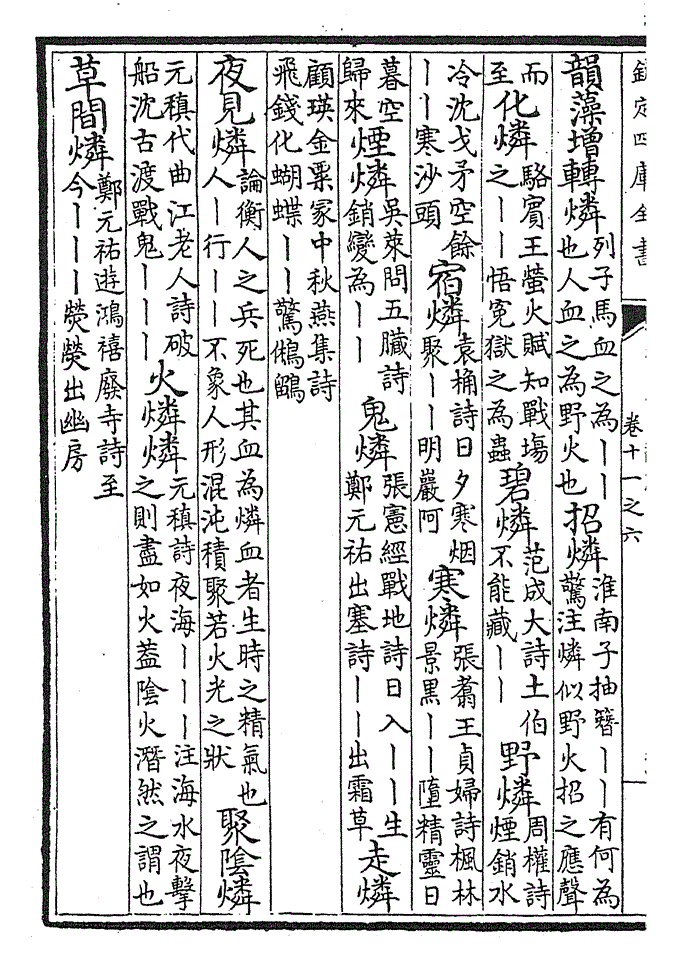 欽定四庫全書
卷十一之六
韻藻增轉燐列子馬血之為丨丨也人血之為野火也招燐淮南子抽簪丨丨有何為驚注燐似野火招之應聲
而至化燐駱賓王螢火賦知戰塲之丨丨悟寃獄之為蟲碧燐范成大詩土伯不能藏丨丨野燐周權詩煙銷水
冷沈戈矛空餘丨丨寒沙頭宿燐袁桷詩日夕寒烟聚丨丨明巖阿寒燐張翥王貞婦詩楓林景黒丨丨墮精靈日
暮空歸來煙燐吳萊問五臟詩銷變為丨丨鬼燐張憲經戰地詩日入丨丨生鄭元祐出塞詩丨丨出霜草走燐
顧瑛金粟冢中秋燕集詩飛錢化蝴蝶丨丨驚鵂鶹
夜見燐論衡人之兵死也其血為燐血者生時之精氣也人丨行丨丨不象人形混沌積聚若火光之狀聚陰燐
元稹代曲江老人詩破船沈古渡戰鬼丨丨丨火燐燐元稹詩夜海丨丨丨注海水夜擊之則盡如火葢陰火潛然之謂也
草間燐鄭元祐遊鴻禧廢寺詩至今丨丨丨熒熒出幽房